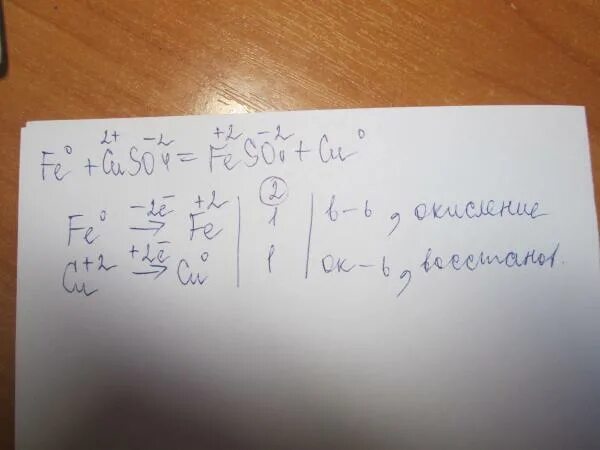 Fe⁰ + Cu²⁺SO₄⁻² = Fe⁺²SO₄⁻² + Cu⁰
Fe⁰ −2e̅→ Fe⁺² | 2 1 | в-ь, окисление
Cu⁺² +2e̅→ Cu⁰ | 1 | ок-ь, восстанов.